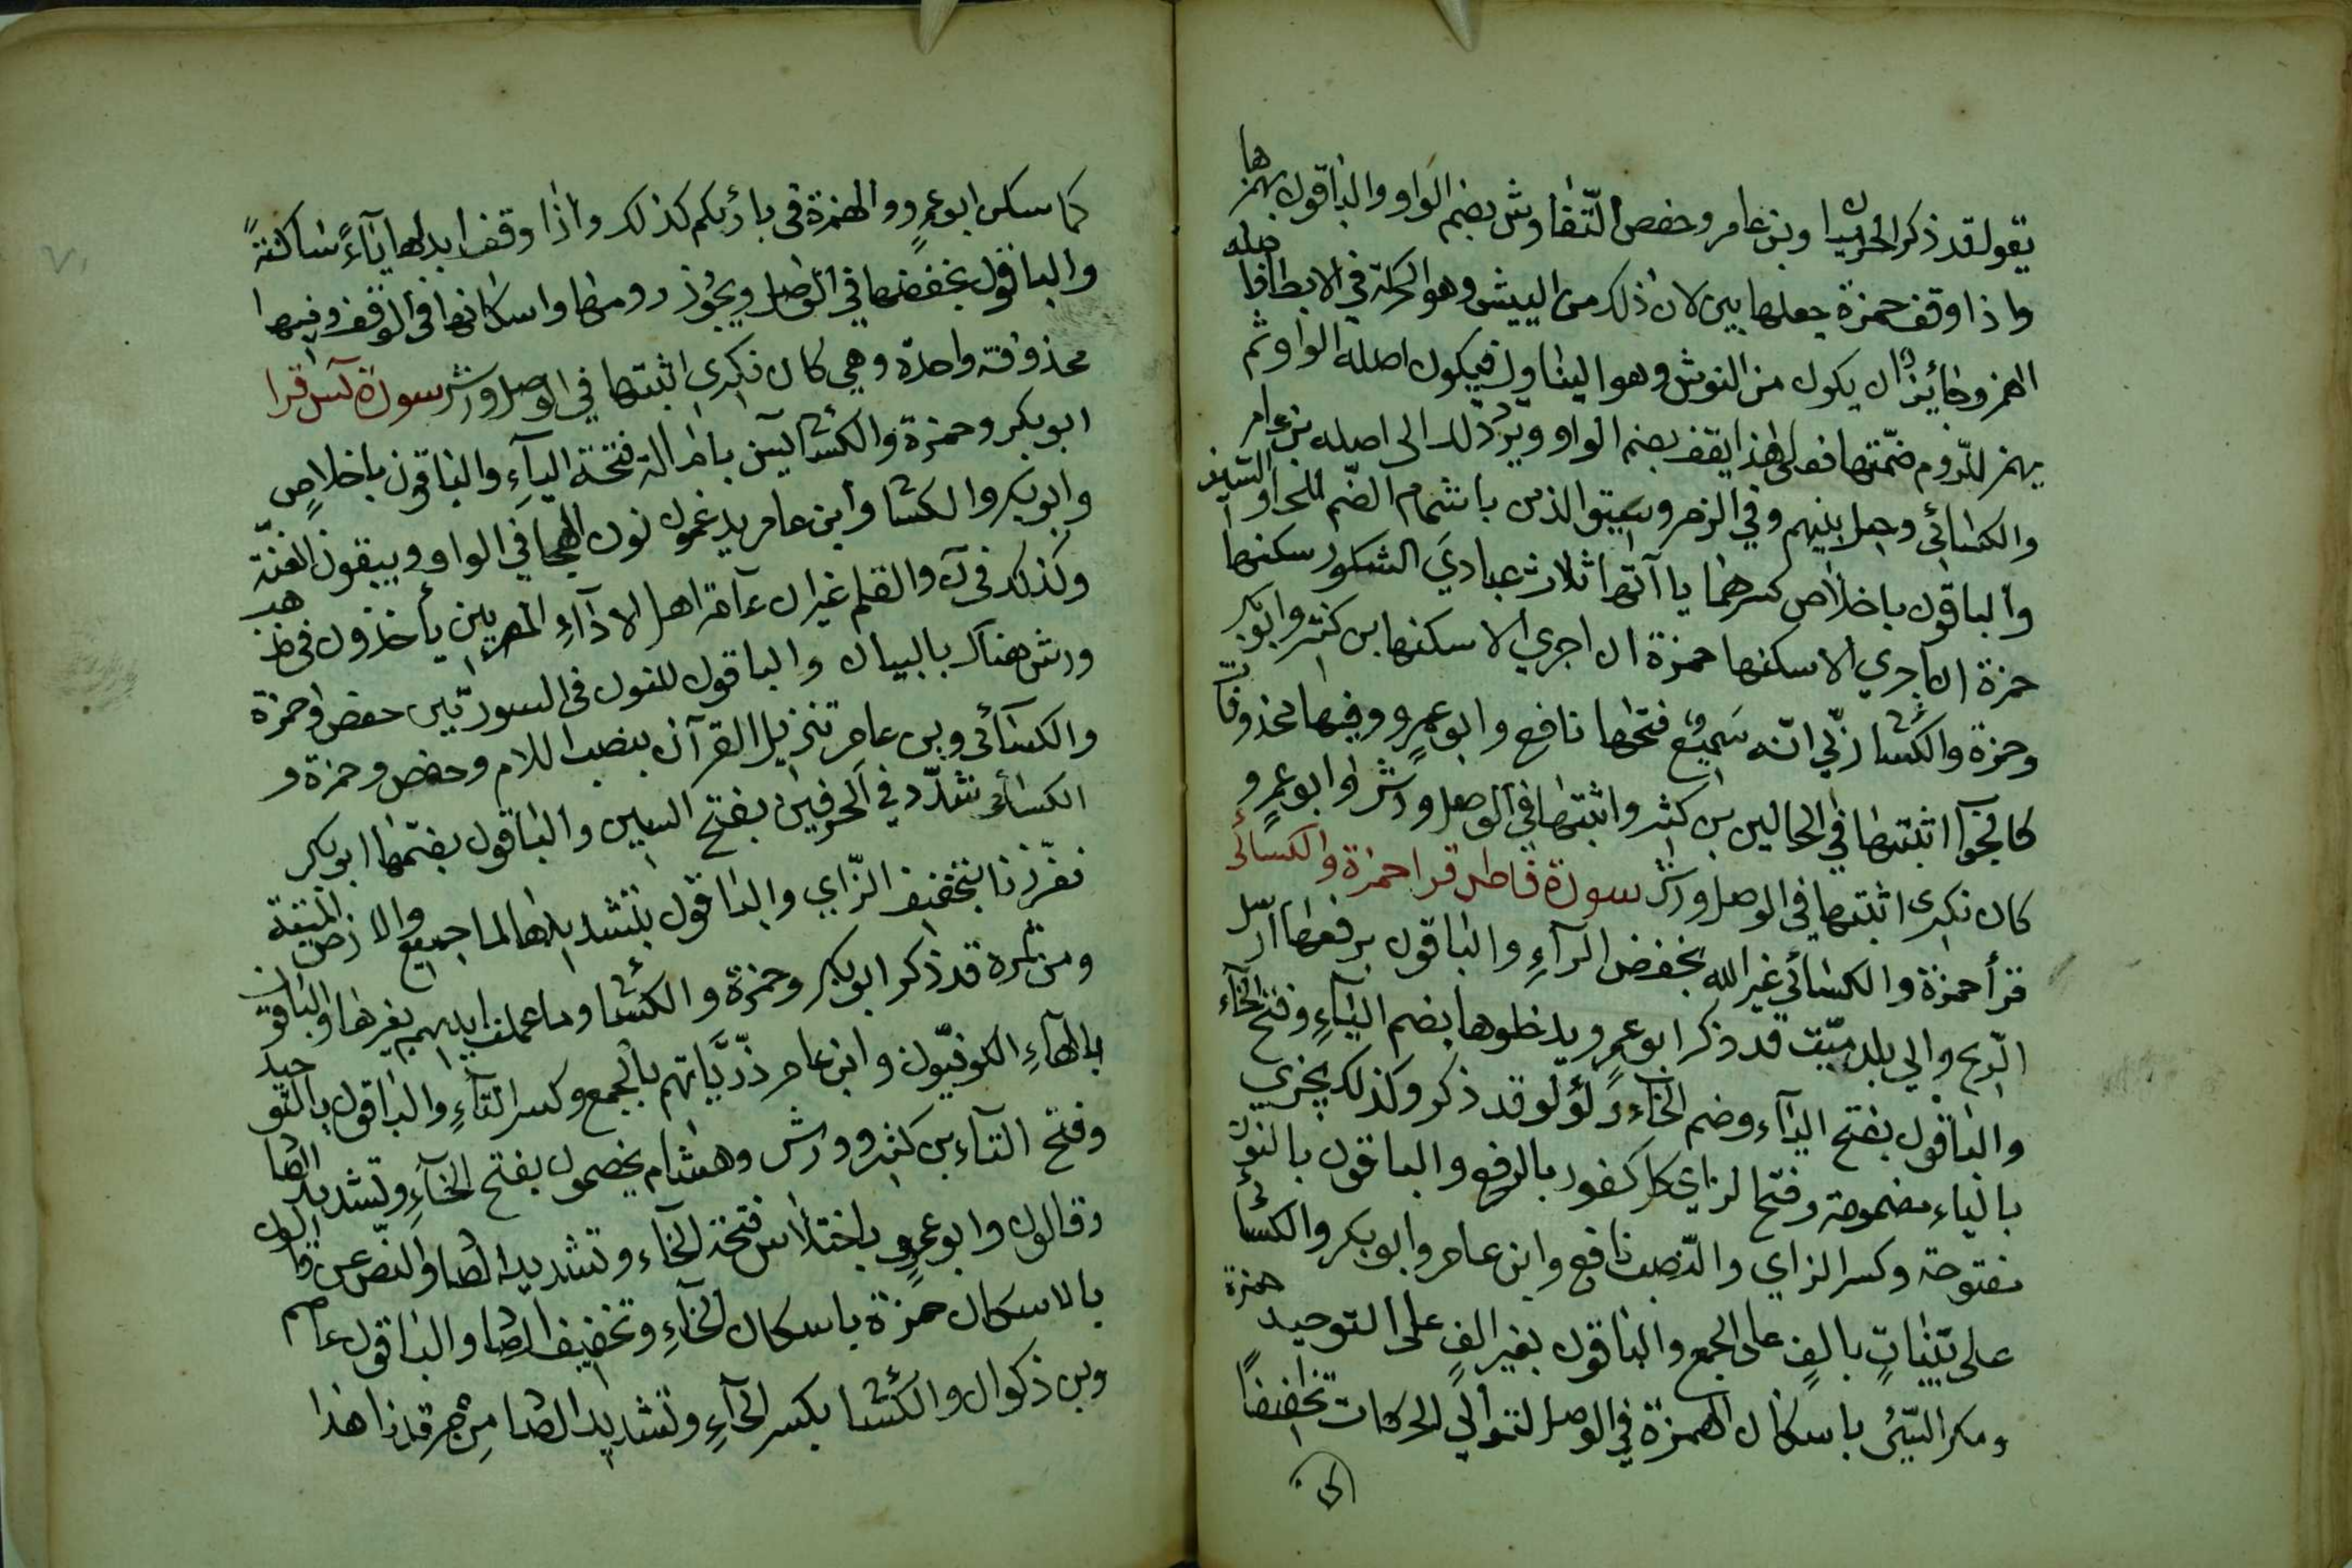 يقول قد ذكر الحرميان وبن عامر وحفص التناوش بضم الواو والباقون بهمزها
واذا وقف حمزة جعلها بين لان ذلك من النيش وهو الحركة في الابطا فاصله
الهمز وجائز ان يكون من النوش وهو التناول فيكون اصله الواو ثم
يهمز للزوم ضمتها فعلى هذا يقف بضم الواو ويرد ذلك الى اصله بن عامر
والكسائي وحيل بينهم وفي الزمر وسيق الذين باشمام الضم للحاء والسين
والباقون باخلاص كسرهما ياآتها ثلاث عبادي الشكور سكنها
حمزة ان اجري الا سكنها حمزة ان اجري الا سكنها بن كثير وابوبكر
وحمزة والكسائي ربي انه سميع فتحها نافع وابو عمرو وفيها محذوفتان
كالجواب اثبتها في الحالين بن كثير واثبتها في الوصل ورش وابو عمرو
كان نكيري اثبتها في الوصل ورش سورة فاطر قرا حمزة والكسائي
قرأ حمزة والكسائي غير الله بخفض الرآء والباقون برفعها ارسل
الريح والى بلد ميت قد ذكر ابو عمرو يدخلوها بضم اليآء وفتح الخآء
والباقون بفتح اليآء وضم الخآء ولؤلؤ قد ذكر وكذلك يجزي
بالياء مضمومة وفتح الزاي كل كفور بالرفع والباقون بالنون
مفتوحة وكسر الزاي والنصب نافع وابن عامر وابوبكر والكسائي
على بينات بالف على الجمع والباقون بغير الف على التوحيد حمزة
ومكر السيئ باسكان الهمزة في الوصل لتوالي الحركات تخفيفا
كما سكن ابو عمرو الهمزة في بارئكم كذلك واذا وقف ابدلها يآء ساكنة
والباقون بخفضها في الوصل ويجوز رومها واسكانها في الوقف وفيها
محذوفة واحدة وهي كان نكيري اثبتها في الوصل ورش سورة يس قرا
ابوبكر وحمزة والكسائي يس بامالة فتحة اليآء والباقون باخلاص
وابوبكر والكسائي وابن عامر يدغمون نون الهجا في الواو ويبقون الغنة
وكذلك في ن والقلم غير ان عامة اهل الادآء المصريين يأخذون في مذهب
ورش هناك بالبيان والباقون للنون في السورتين حفص وحمزة
والكسآئي وبن عامر تنزيل القرآن بنصب اللام وحفص وحمزة و
الكسائي سدا في الحرفين بفتح السين والباقون بضمها ابوبكر
فعززنا بتخفيف الزاي والباقون بتشديدها لما جميع والارض الميتة
ومن ثمره قد ذكر ابوبكر وحمزة والكسائي وما عملت ايديهم بغير ها والباقون
بالهآء الكوفيون وابن عامر ذرياتهم بالجمع وكسر التآء والباقون بالتوحيد
وفتح التاء بن كثير وورش وهشام يخصمون بفتح الخآء وتشديد الصا
وقالون وابو عمرو باختلاس فتحة الخآء وتشديد الصا والنص عن قالون
بالاسكان حمزة باسكان الخآء وتخفيف الصا والباقون عاصم
وبن ذكوان والكسائي بكسر الخآء وتشديد الصا من مرقدنا هذا